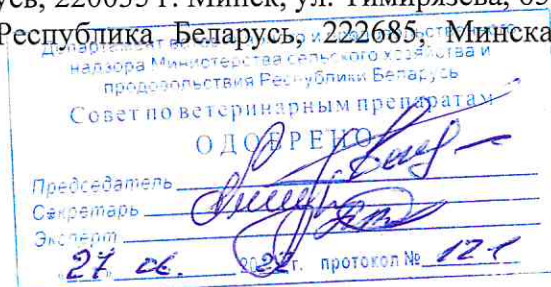 усь, 220035 г. Минск, ул. Тимирязева, 65
Республика Беларусь, 222685, Минска
Департамент и
надзора Министерства сельского хозяйства и
продовольствия Республики Беларусь
Совет по ветеринарным препаратам
ОДОБРЕНО
Председатель
Секретарь
Эксперт
"27" 06. 2022 г. протокол № 121